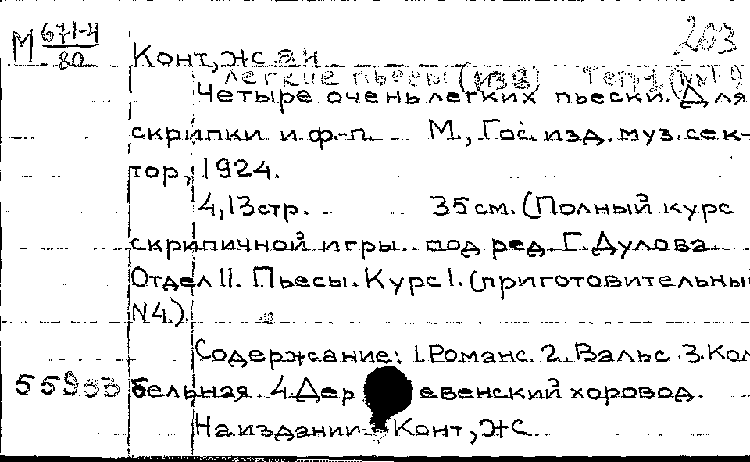 М 671-4 203
80 Конт, Жан
легкие пьесы
Четыре очень легких пьески. Для
скрипки и ф-п. М., Гос. изд. муз. сек-
тор, 1924.
4, 13 стр. 35 см. (Полный курс
скрипичной игры под ред. Г. Дулова
Отдел II. Пьесы. Курс I. (приготовительный
N4.)
Содержание: 1. Романс. 2. Вальс. 3. Кол
бельная. 4. Дер евенский хоровод.
На издании: Конт, Ж